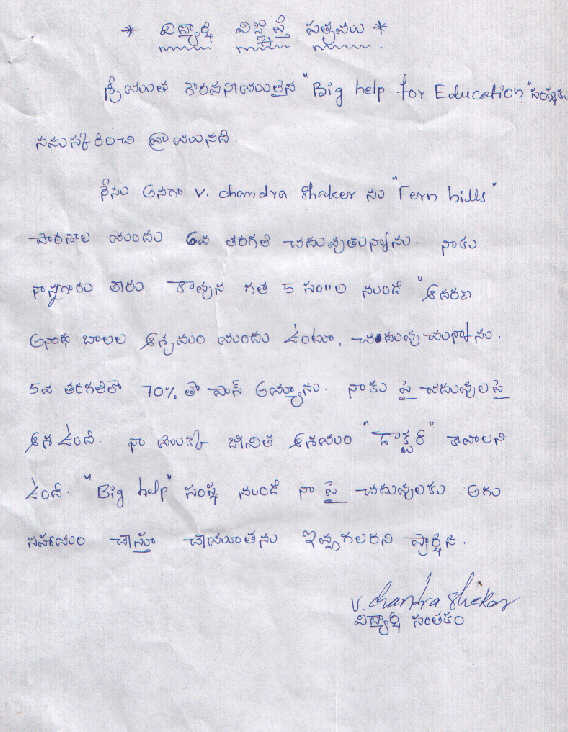 * విద్యార్థి విజ్ఞప్తి పత్రము *
శ్రీయుత గౌరవనీయులైన "Big help for Education" సంస్థకు
నమస్కరించి వ్రాయునది
నేను అనగా V. chandra Shaker ను "Fern hills"
పాఠశాల యందు 6వ తరగతి చదువుతున్నాను. నాకు
నాన్నగారు లేరు కావున గత 5 సం॥ల నుండి "ఆదరణ
అనాధ బాలల ఆశ్రమం యందు ఉంటూ, చదువు చున్నాను.
5వ తరగతిలో 70% తో పాస్ అయ్యాను. నాకు పై చదువులపై
ఆశ ఉంది. నా యొక్క జీవిత ఆశయం "డాక్టర్" కావాలని
ఉంది. "Big help" సంస్థ నుండి నా పై చదువులకు తగు
సహాయం చేస్తూ చేయూతను ఇవ్వగలరని ప్రార్థన.
V. Chandra Sheker
విద్యార్థి సంతకం